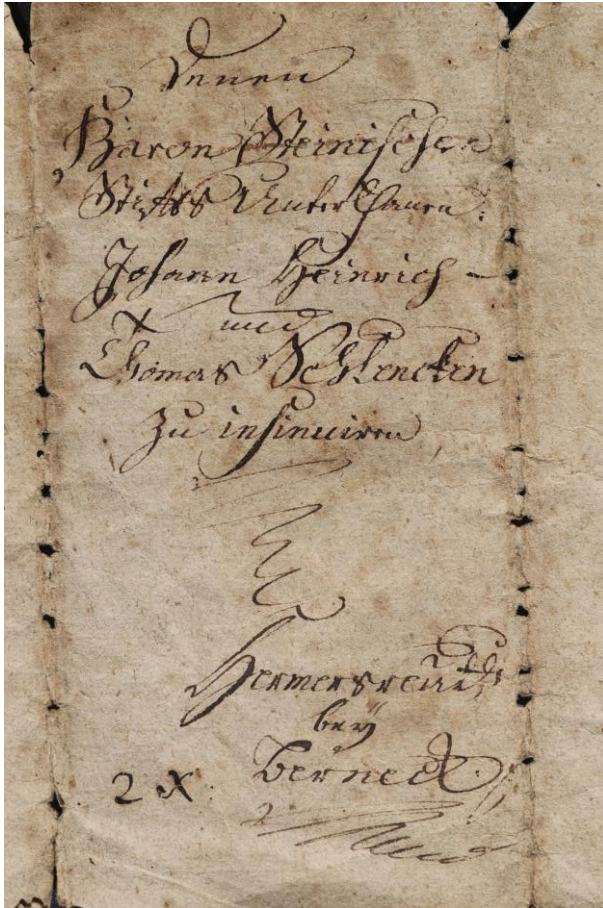 Denen
Baron Steinischen
Stiffts Unterthanen:
Johann Heinrich –
und
Thomas Schlencken
zu insinuiren
Hermersreuth
bey
Berneck
2 x